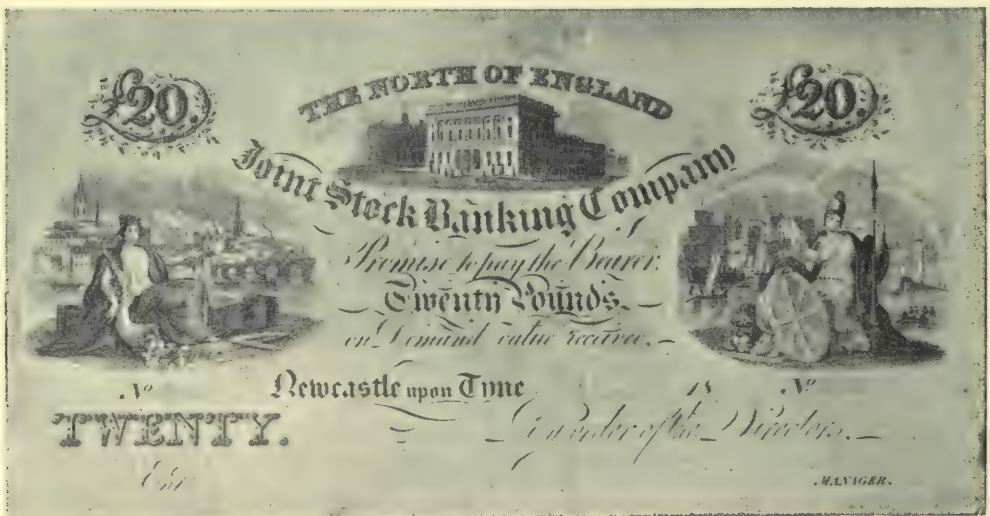 £20. £20.
THE NORTH OF ENGLAND
Joint Stock Banking Company
Promise to pay the Bearer
Twenty Pounds
on Demand value received.
No Newcastle upon Tyne 18 No
TWENTY. By order of the Directors.
Ent
MANAGER.